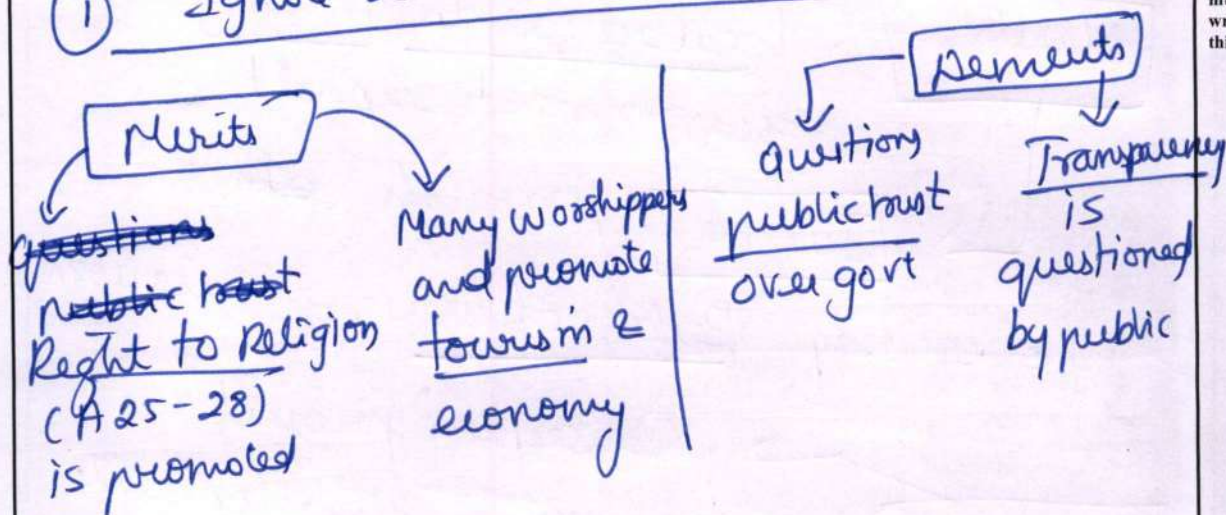 ① Ignore
Merits
questions
public trust
Right to Religion
(A 25-28)
is promoted
Many worshippers
and promote
tourism &
economy
Demerits
questions
public trust
over govt
Transparency
is
questioned
by public